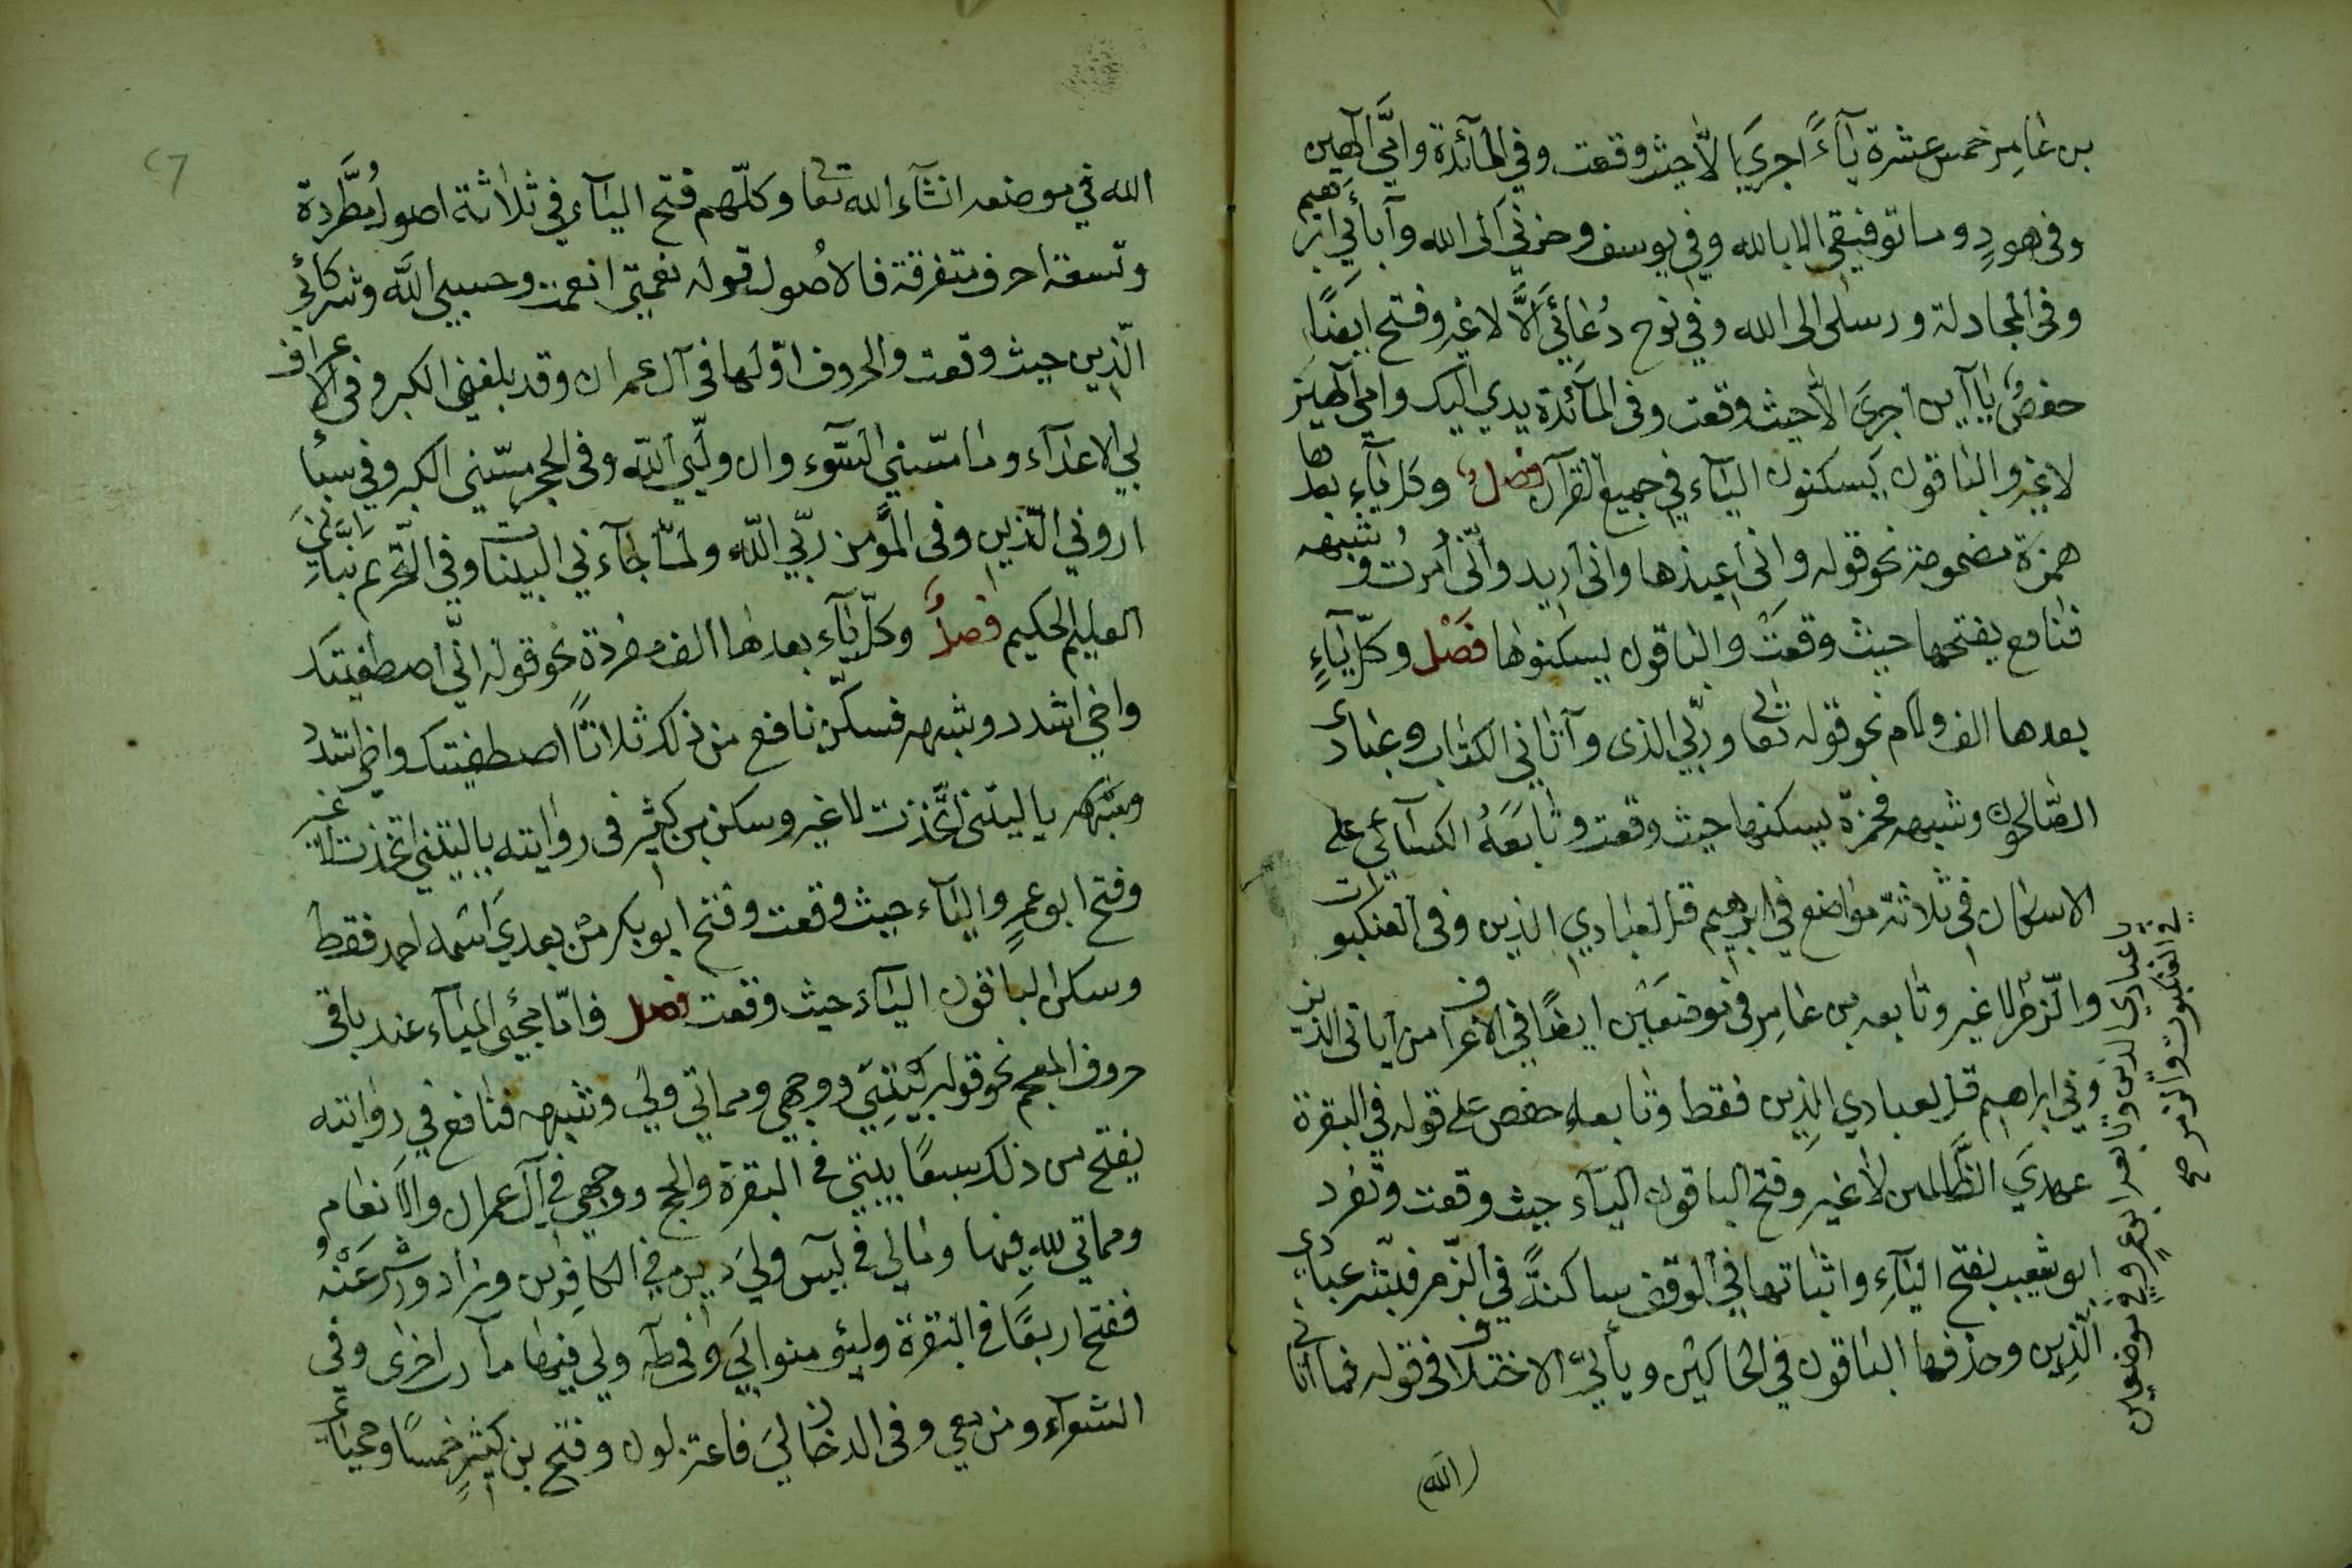 بن عامر خمس عشرة ياءً اجري الّا حيث وقعت وفي المآئدة وامّي آلهين
وفي هودٍ وما توفيقي الا بالله وفي يوسف وحزني الى الله وآبائي ابرهيم
وفي المجادلة ورسلي ان الله وفي نوح دُعائي الّا لا غير وفتح ايضًا
حفصٌ يا آين اجري الّا حيث وقعت وفي المآئدة يدي اليك وامي آلهين
لا غير والباقون يسكنون الياء في جميع القرآن فصل وكل ياءٍ بعدها
همزة مضمومة نحو قوله واني اعيذها واني اريد وانّي أمرت وشبهه
فنافع يفتحها حيث وقعت والباقون يسكنوها فصل وكلّ ياءٍ
بعدها الف ولام نحو قوله تعالى وربّي الذى وآتاني الكتاب وعبادي
الصّالحون وشبهه فحمزة يسكنها حيث وقعت وتابعَهُ الكسآئي على
الاسكان في ثلاثة مواضع في ابرهيم قل لعبادي الذين وفي العنكبوت
والزّمر لا غير وتابعه بن عامر في موضعين ايضًا في الاعراف من آياتي الذين
وفي ابراهيم قل لعبادي الذين فقط وتابعه حفص على قوله في البقرة
عهدي الظّالمين لا غير وفتح الباقون الياء حيث وقعت وتفرد
ابو شعيب بفتح الياءِ واثباتها في الوقف ساكنةً في الزّمر فبشّر عبادي
الّذين وحذفها الباقون في الحالين ويأتي الاختلاف في قوله فما آتاني
يا عبادي الذين وتابعه ابو عمرٍو في موضعين
في العنكبوت والزمر صح
الله
الله في موضعه انشآء الله تعالى وكلّهم فتح الياء في ثلاثة اصول مُطَّردة
وتسعة احرف متفرقة فالاُصول قوله نعمتي انعمت وحسبي الله وشركآئي
الّذين حيث وقعت والحروف اوّلها في آل عمران وقد بلغني الكبر وفي الاعراف
بي الاعدآء وما مسّني السّوء وان وليّي الله وفي الحجر مسّني الكبر وفي سبأ
اروني الّذين وفي المؤمن ربّي الله ولمّا جآءني البينات وفي التحريم نبّأني
العليم الحكيم فصلٌ وكلّ ياء بعدها الف مفردة نحو قوله انّي اصطفيتك
واخي اشدد وشبهه فسكّن نافع من ذلك ثلاثاً اصطفيتك واخي اشدد
ومثله يا ليتني اتّخذت لا غير وسكن بن كثير في روايته يا ليتني اتخذت لا غير
وفتح ابو عمرٍو الياء حيث وقعت وفتح ابو بكر من بعدي اسمه احمد فقط
وسكن الباقون الياء حيث وقعت فصل فامّا مجئي الياء عند باقي
حروف المعجم نحو قوله بيتي ووجهي ومماتي ولي وشبهه فنافع في روايته
يفتح من ذلك سبعًا بيتي في البقرة والحج ووجهي في آل عمران والانعام
ومماتي لله فيها ومالي في يس ولي دين في الكافرين وزاد ورش عَنْهُ
ففتح اربعًا في البقرة وليؤمنوا بي وفي طه ولي فيها مآرب اخرى وفي
الشعرآء ومن معي وفي الدخان لي فاعتزلون وفتح بن كثير خمسًا ومحياي